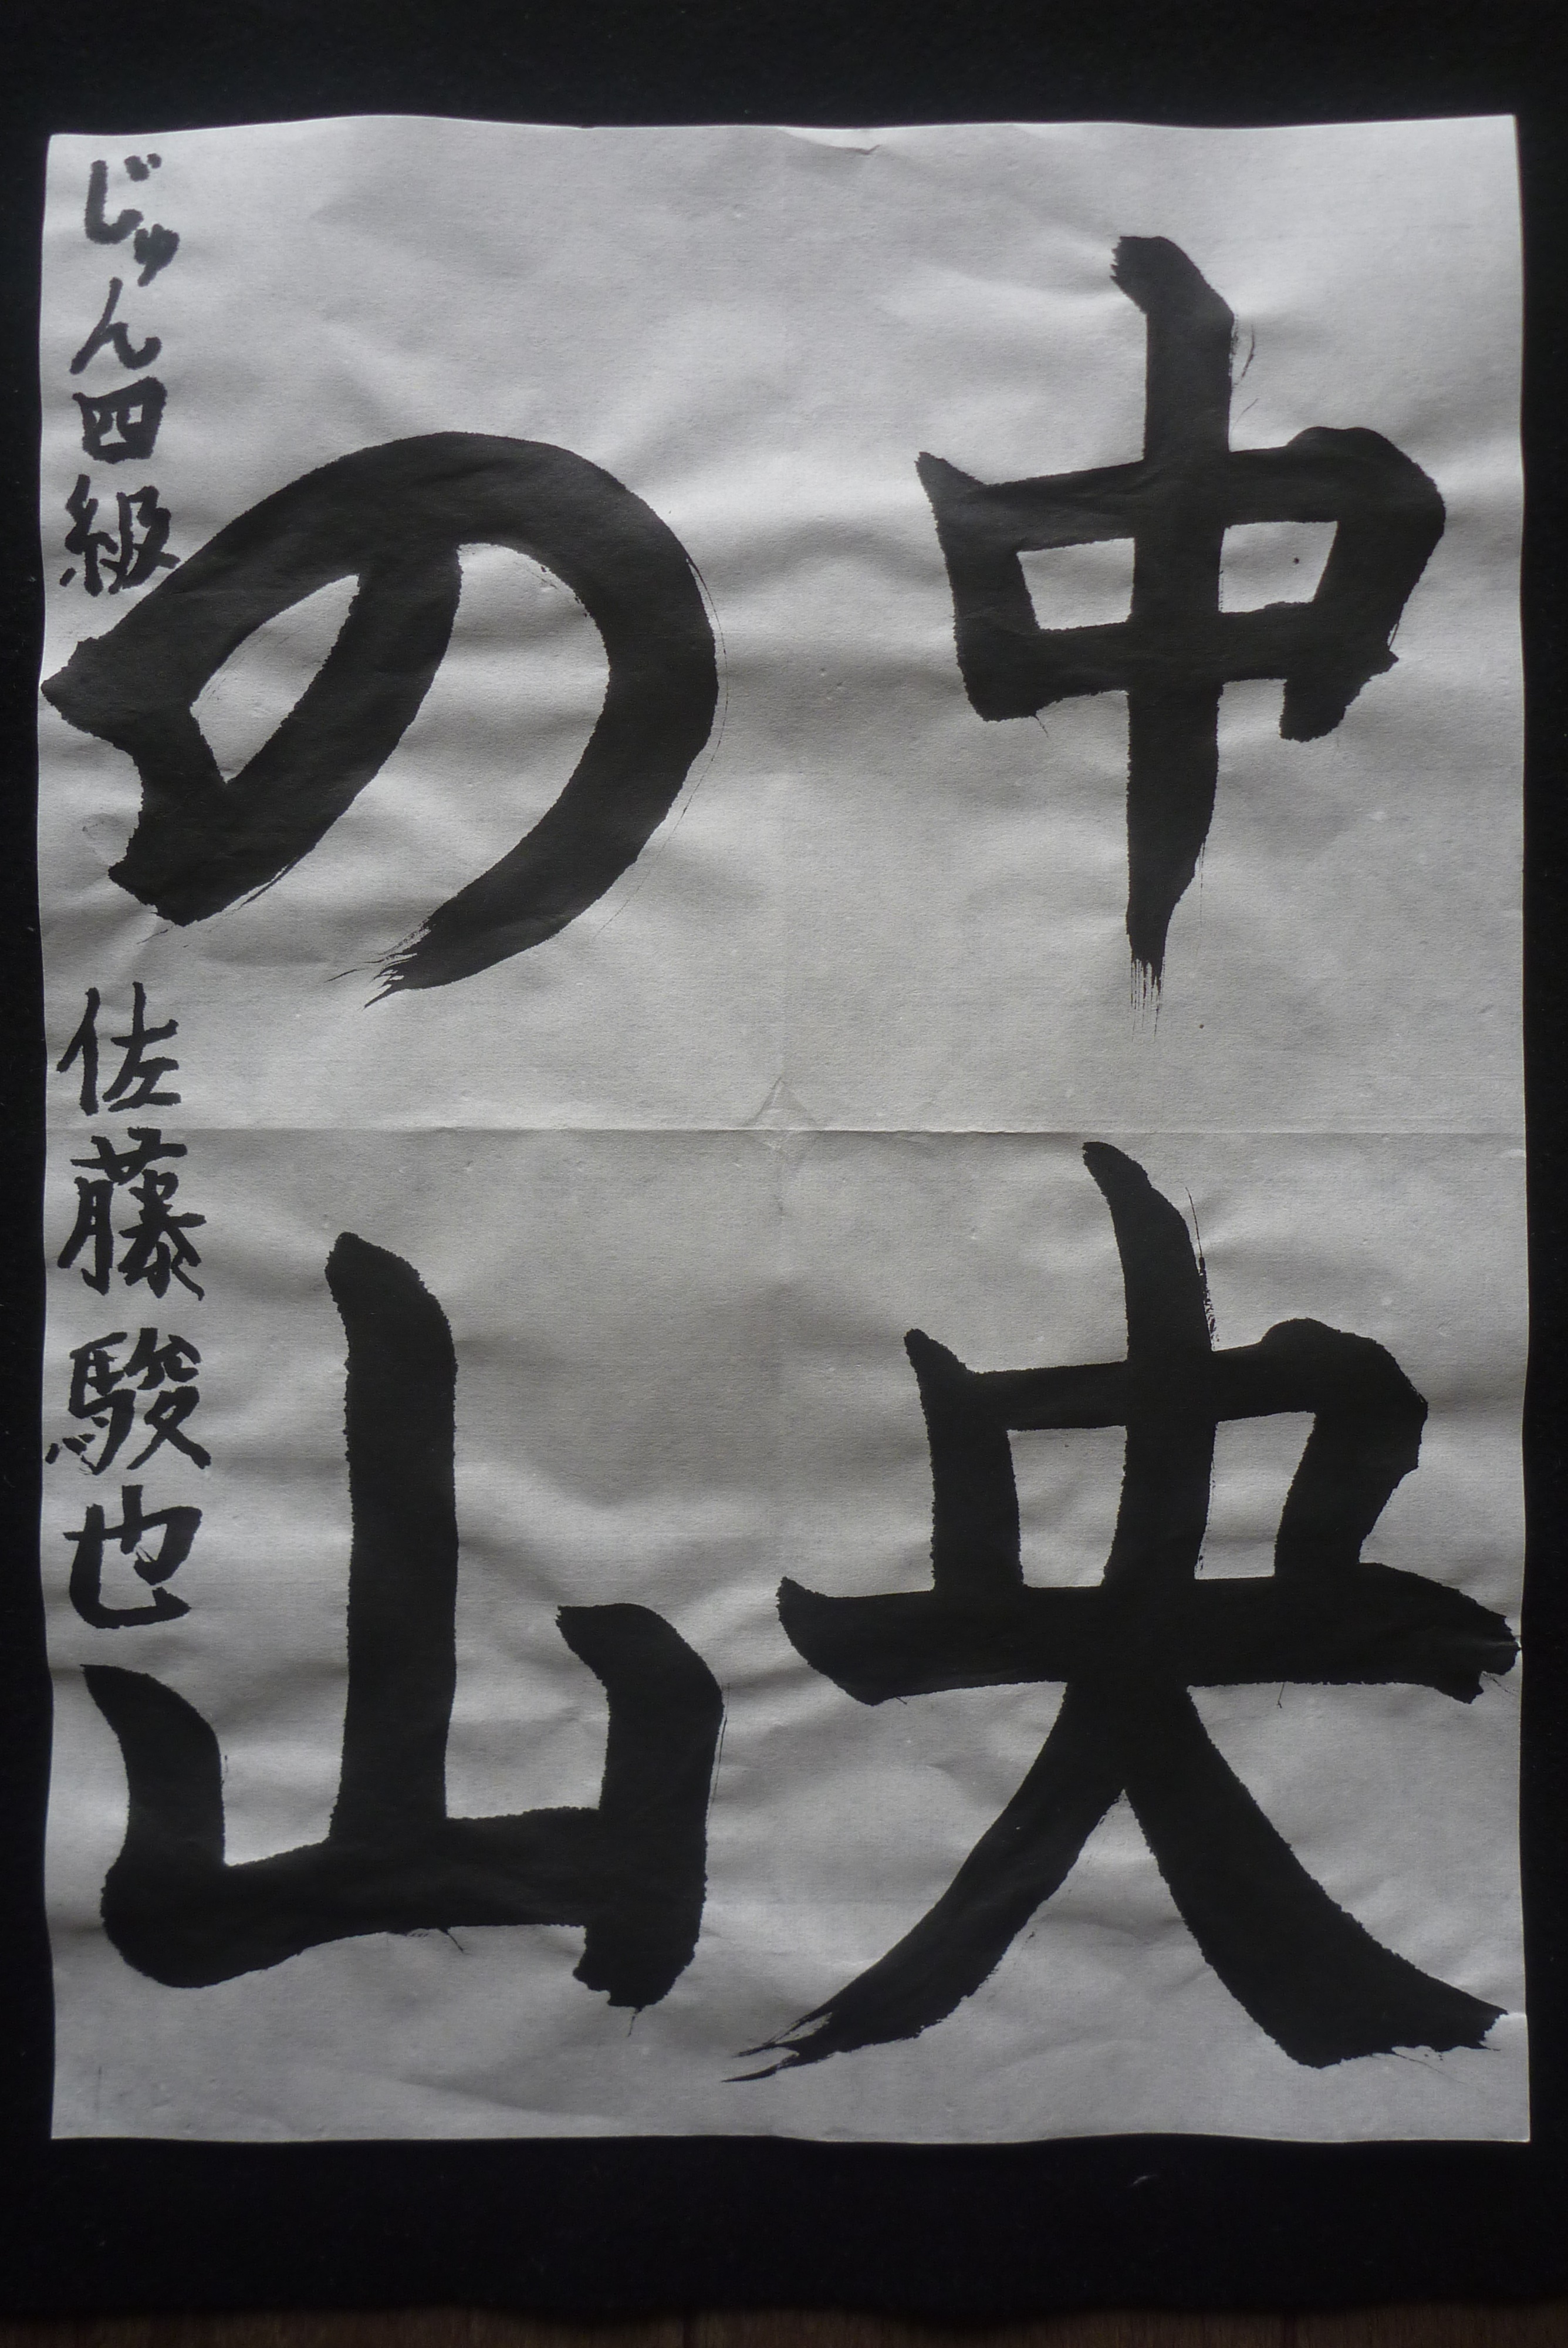 中央
の山
じゅん四級 佐藤駿也